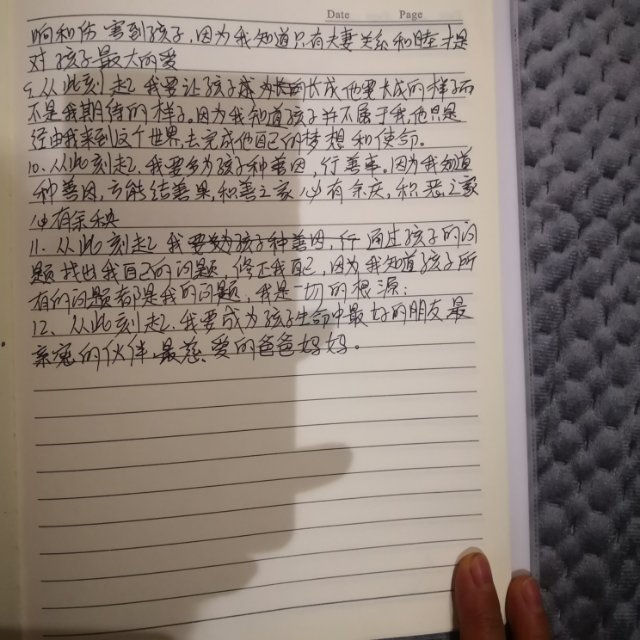 Date Page
响和伤害到孩子,因为我知道只有夫妻关系和睦才是
对孩子最大的爱
9.从此刻起,我要让孩子成为长成他要长成的样子而
不是我期待的样子。因为我知道孩子并不属于我,他只是
经由我来到这个世界,去完成他自己的梦想和使命。
10、从此刻起,我要多为孩子种善因,行善事。因为我知道
种善因,方能结善果,积善之家必有余庆,积恶之家
必有余秧
11、从此刻起,我要为孩子种善因,行通过孩子的问
题找出我自己的问题,修正我自己,因为我知道孩子所
有的问题都是我的问题,我是一切的根源;
12、从此刻起,我要成为孩子生命中最好的朋友,最
亲密的伙伴,最慈爱的爸爸妈妈。